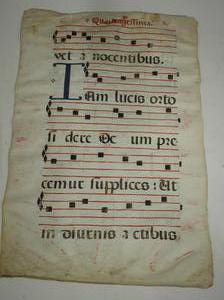 vet a nocentibus.
IAm lucis orto
si dere De um pre
cemur supplices: Ut
in diurnis a ctibus